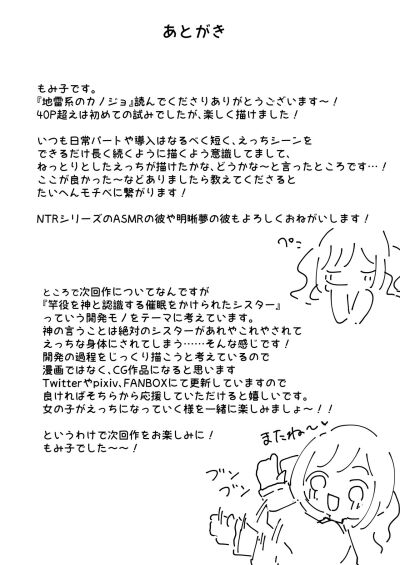 あとがき
もみ子です。
『地雷系のカノジョ』読んでくださりありがとうございます〜！
40P超えは初めての試みでしたが、楽しく描けました！
いつも日常パートや導入はなるべく短く、えっちシーンを
できるだけ長く続くように描くよう意識してまして、
ねっとりとしたえっちが描けたかな、どうかな〜と言ったところです…！
ここが良かった〜などありましたら教えてくださると
たいへんモチベに繋がります！
NTRシリーズのASMRの彼や明晰夢の彼もよろしくおねがいします！
ペこ
ところで次回作についてなんですが
『竿役を神と認識する催眠をかけられたシスター』
っていう開発モノをテーマに考えています。
神の言うことは絶対のシスターがあれやこれやされて
えっちな身体にされてしまう……そんな感じです！
開発の過程をじっくり描こうと考えているので
漫画ではなく、CG作品になると思います
Twitterやpixiv、FANBOXにて更新していますので
良ければそちらから応援していただけると嬉しいです。
女の子がえっちになっていく様を一緒に楽しみましょ〜！！
というわけで次回作をお楽しみに！
もみ子でした〜〜！
またね〜♥
ブン
ブン